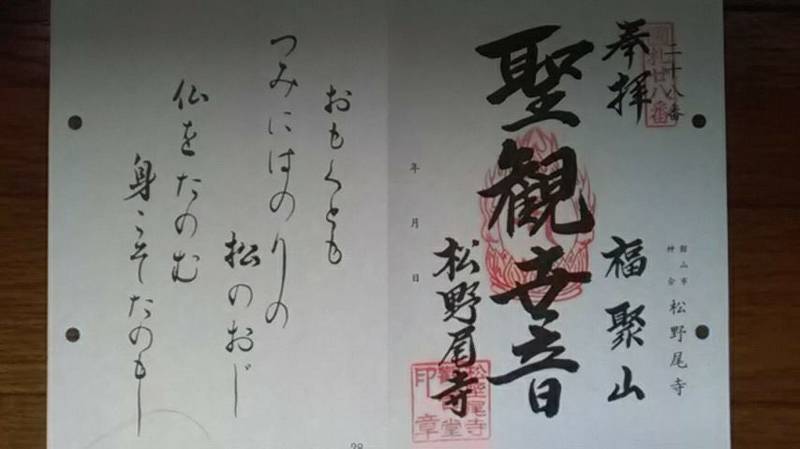 二十八番
順礼廿八番
奉拝
館山市
神余
松野尾寺
福聚山
聖観世音
年　月　日
松野尾寺
松野尾寺
観音堂
印章
おもくとも
つみにはのりの
松のおじ
仏をたのむ
身こそたのもし
28